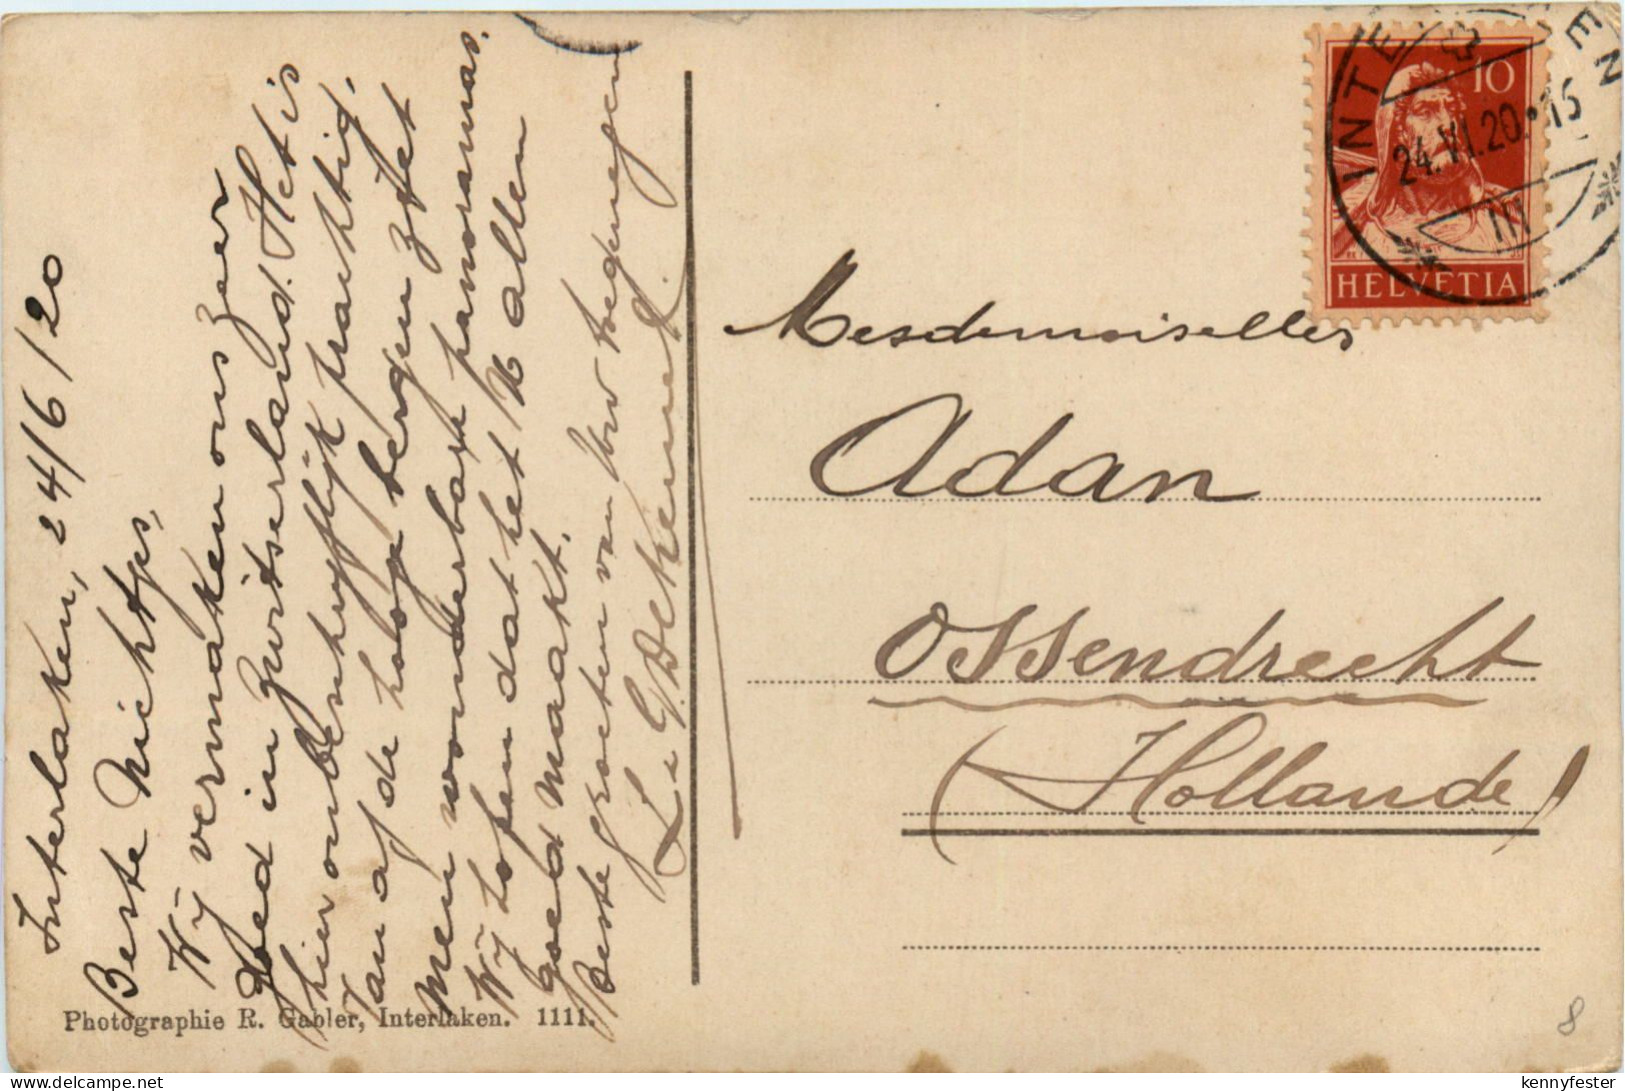 Interlaken, 24/6/20
Beste Nichtjes,
Wij vermaken ons zeer
goed in Zwitserland. Het is
hier onbeschrijflijk prachtig.
Van af de hooge bergen ziet
Men wonderbare panoramas.
Wij hopen dat het U allen
goed maakt.
Beste groeten van Uw toegenegen
L. G.
Photographie R. Gabler, Interlaken. 1111.
Mesdemoiselles
Adan
Ossendrecht
(Hollande)
10
HELVETIA
INTERLAKEN
24.VI.20.•15
III
8
delcampe.net
kennyfester